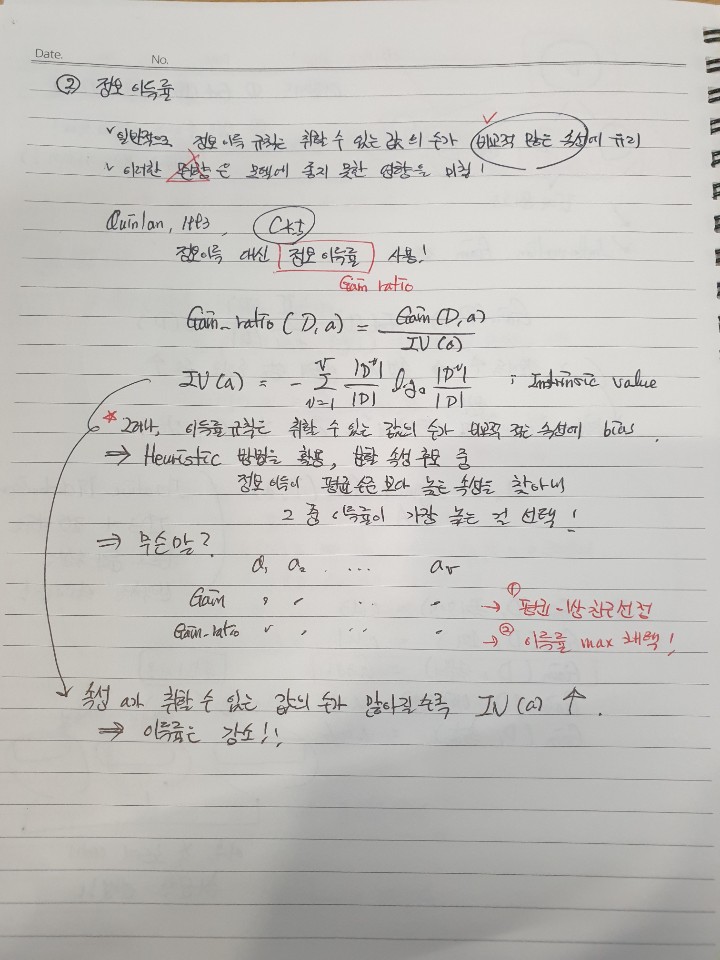 Date. No.
② 정보 이득률
✓ 일반적으로 정보 이득 규칙은 취할 수 있는 값의 수가 비교적 많은 속성에 유리
✓ 이러한 편향은 모델에 좋지 못한 영향을 미침!
Quinlan, 1993, C4.5
정보이득 대신 정보 이득률 사용!
Gain ratio
Gain_ratio (D, a) = Gain(D, a) / IV(a)
IV(a) = - Σ_{v=1}^{V} |D^v|/|D| log₂ |D^v|/|D| ; Intrinsic value
* 그러나, 이득률 규칙은 취할 수 있는 값의 수가 비교적 적은 속성에 bias.
⇒ Heuristic 방법을 활용, 분할 속성 후보 중
정보 이득이 평균 수준 보다 높은 속성을 찾아내
그 중 이득률이 가장 높은 걸 선택!
⇒ 무슨말?
a₁ a₂ ... aᵥ
Gain → ① 평균 이상 선정
Gain-ratio → ② 이득률 max 채택!
속성 a가 취할 수 있는 값의 수가 많아질수록 IV(a) ↑.
⇒ 이득률은 감소!!